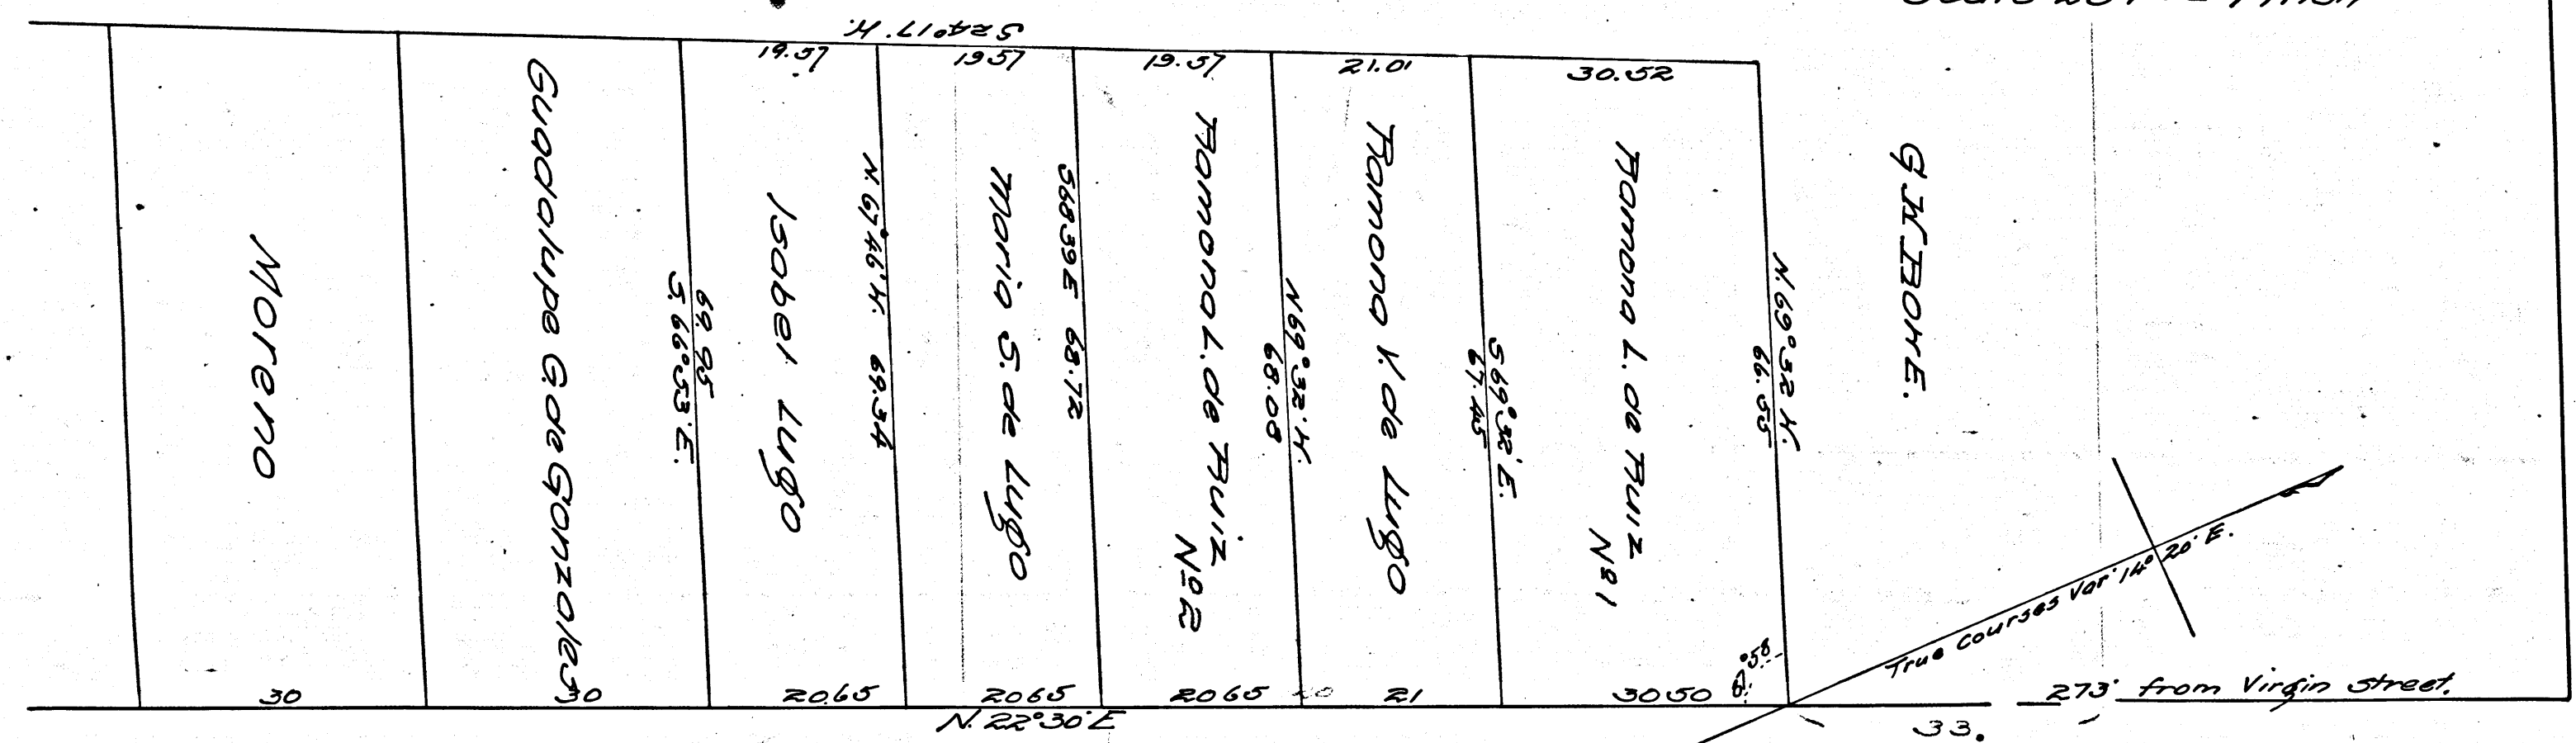 S 24°17' W.
19.57
1957
19.57
21.01
30.52
Moreno
Guadalupe G. de Gonzales
69.95
S. 66°53' E.
Isabel Lugo
N. 67°46' W. 69.34
Maria S. de Lugo
S68 39 E 68.72
Ramona L. de Ruiz
Nº 2
N 69°32' W.
68.08
Ramona V. de Lugo
S 69°32' E.
67.45
Ramona L. de Ruiz
Nº 1
N. 69°32 W.
66.55
G.W. BowE.
True Courses Var 14° 20' E.
30
30
20.65
2065
2065
21
3050
273' from Virgin Street.
N. 22°30' E
33.